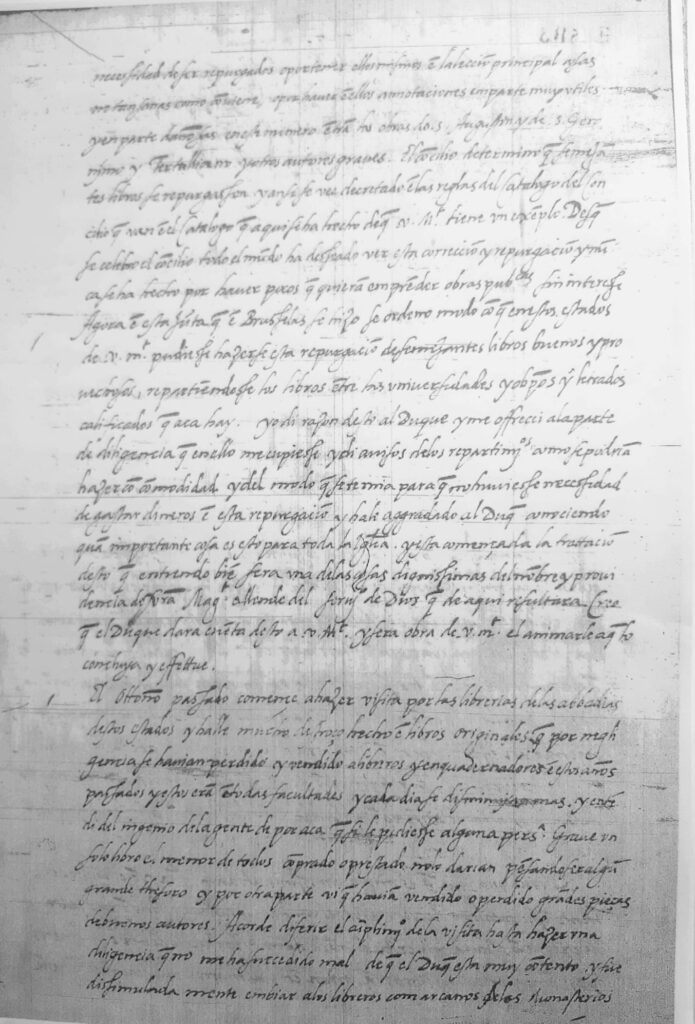 necessidad de ser repurgados o por tener ellos mismos ẽ la lecciõ principal cosas
no tan sanas como cõviene, o por haver ẽ ellos annotaciones em parte muy utiles
y en parte dañosas en este numero estã las obras de S. Augustin y de S. Gero
nimo y Tertulliano y otros autores graves. El Cõcilio determino q̃ semejã
tes libros se repurgassen y ansi se vee decretado ẽ las reglas del Catalogo del Con
cilio q̃ van ẽ el Catalogo q̃ aqui se ha hecho de q̃ v. M.t tiene un exẽplo. Desq̃
se celebro el cõcilio todo el mũdo ha desseado ver esta correciõ y repurgaciõ y nũ
ca se ha hecho por haver pocos q̃ quierã emprẽder obras pub.cas sin interesse
Agora ẽ esta jũta q̃ ẽ Brusselas se hizo se ordeno modo cõ q̃ en estos estados
de v. m.t pudiesse hazerse esta repurgaciõ de semejantes libros buenos y pro
vechosos, repartiẽdose los libros ẽtre las universidades y obp̃os y letrados
calificados q̃ aca hay. yo di razon desto al Duque y me offreci a la parte
de diligencia q̃ en ello me cupiesse y di avisos de los repartim.os como se podriã
hazer cõ cõmodidad y del modo q̃ se ternia para q̃ no huviesse necessidad
de gastar dineros ẽ esta repurgaciõ y hale aggradado al Duq̃ conociendo
quã importante cosa es esto para toda la Igl̃ia. y esta comẽçada la trattaciõ
desto q̃ entiendo biẽ sera una de las cosas dignissimas del nõbre y provi
dencia de vr̃a Mag.t allende del servi.o de Dios q̃ de aqui resultara. Creo
q̃ el Duque dara cuẽta desto a v. M.t y sera obra de v. m.t el animarle a q̃ lo
concluya y effettue.
El Ottoño passado comence a hazer visita por las librerias de las abbadias
destos estados y halle mucho destroço hecho ẽ libros originales q̃ por negli
gencia se havian perdido y vendido a libreros y enquadernadores ẽ estos años
passados y estos erã ẽ todas facultades y cada dia se diminuyen mas. y entẽ
di del ingenio de la gente de por aca q̃ si le pudiesse alguna pers.a Grave un
solo libro el menor de todos cõprado o prestado no lo darian pẽsando ser algũ
grande thesoro y por otra parte vi q̃ haviã vendido o perdido grãdes pieças
de buenos autores. Acorde diferir el cũplim.o de la visita hasta hazer una
diligencia q̃ no me ha succedido mal de q̃ el Duq̃ esta muy cõtento. y fue
dissimulada mente embiar a los libreros comarcanos de los Monasterios